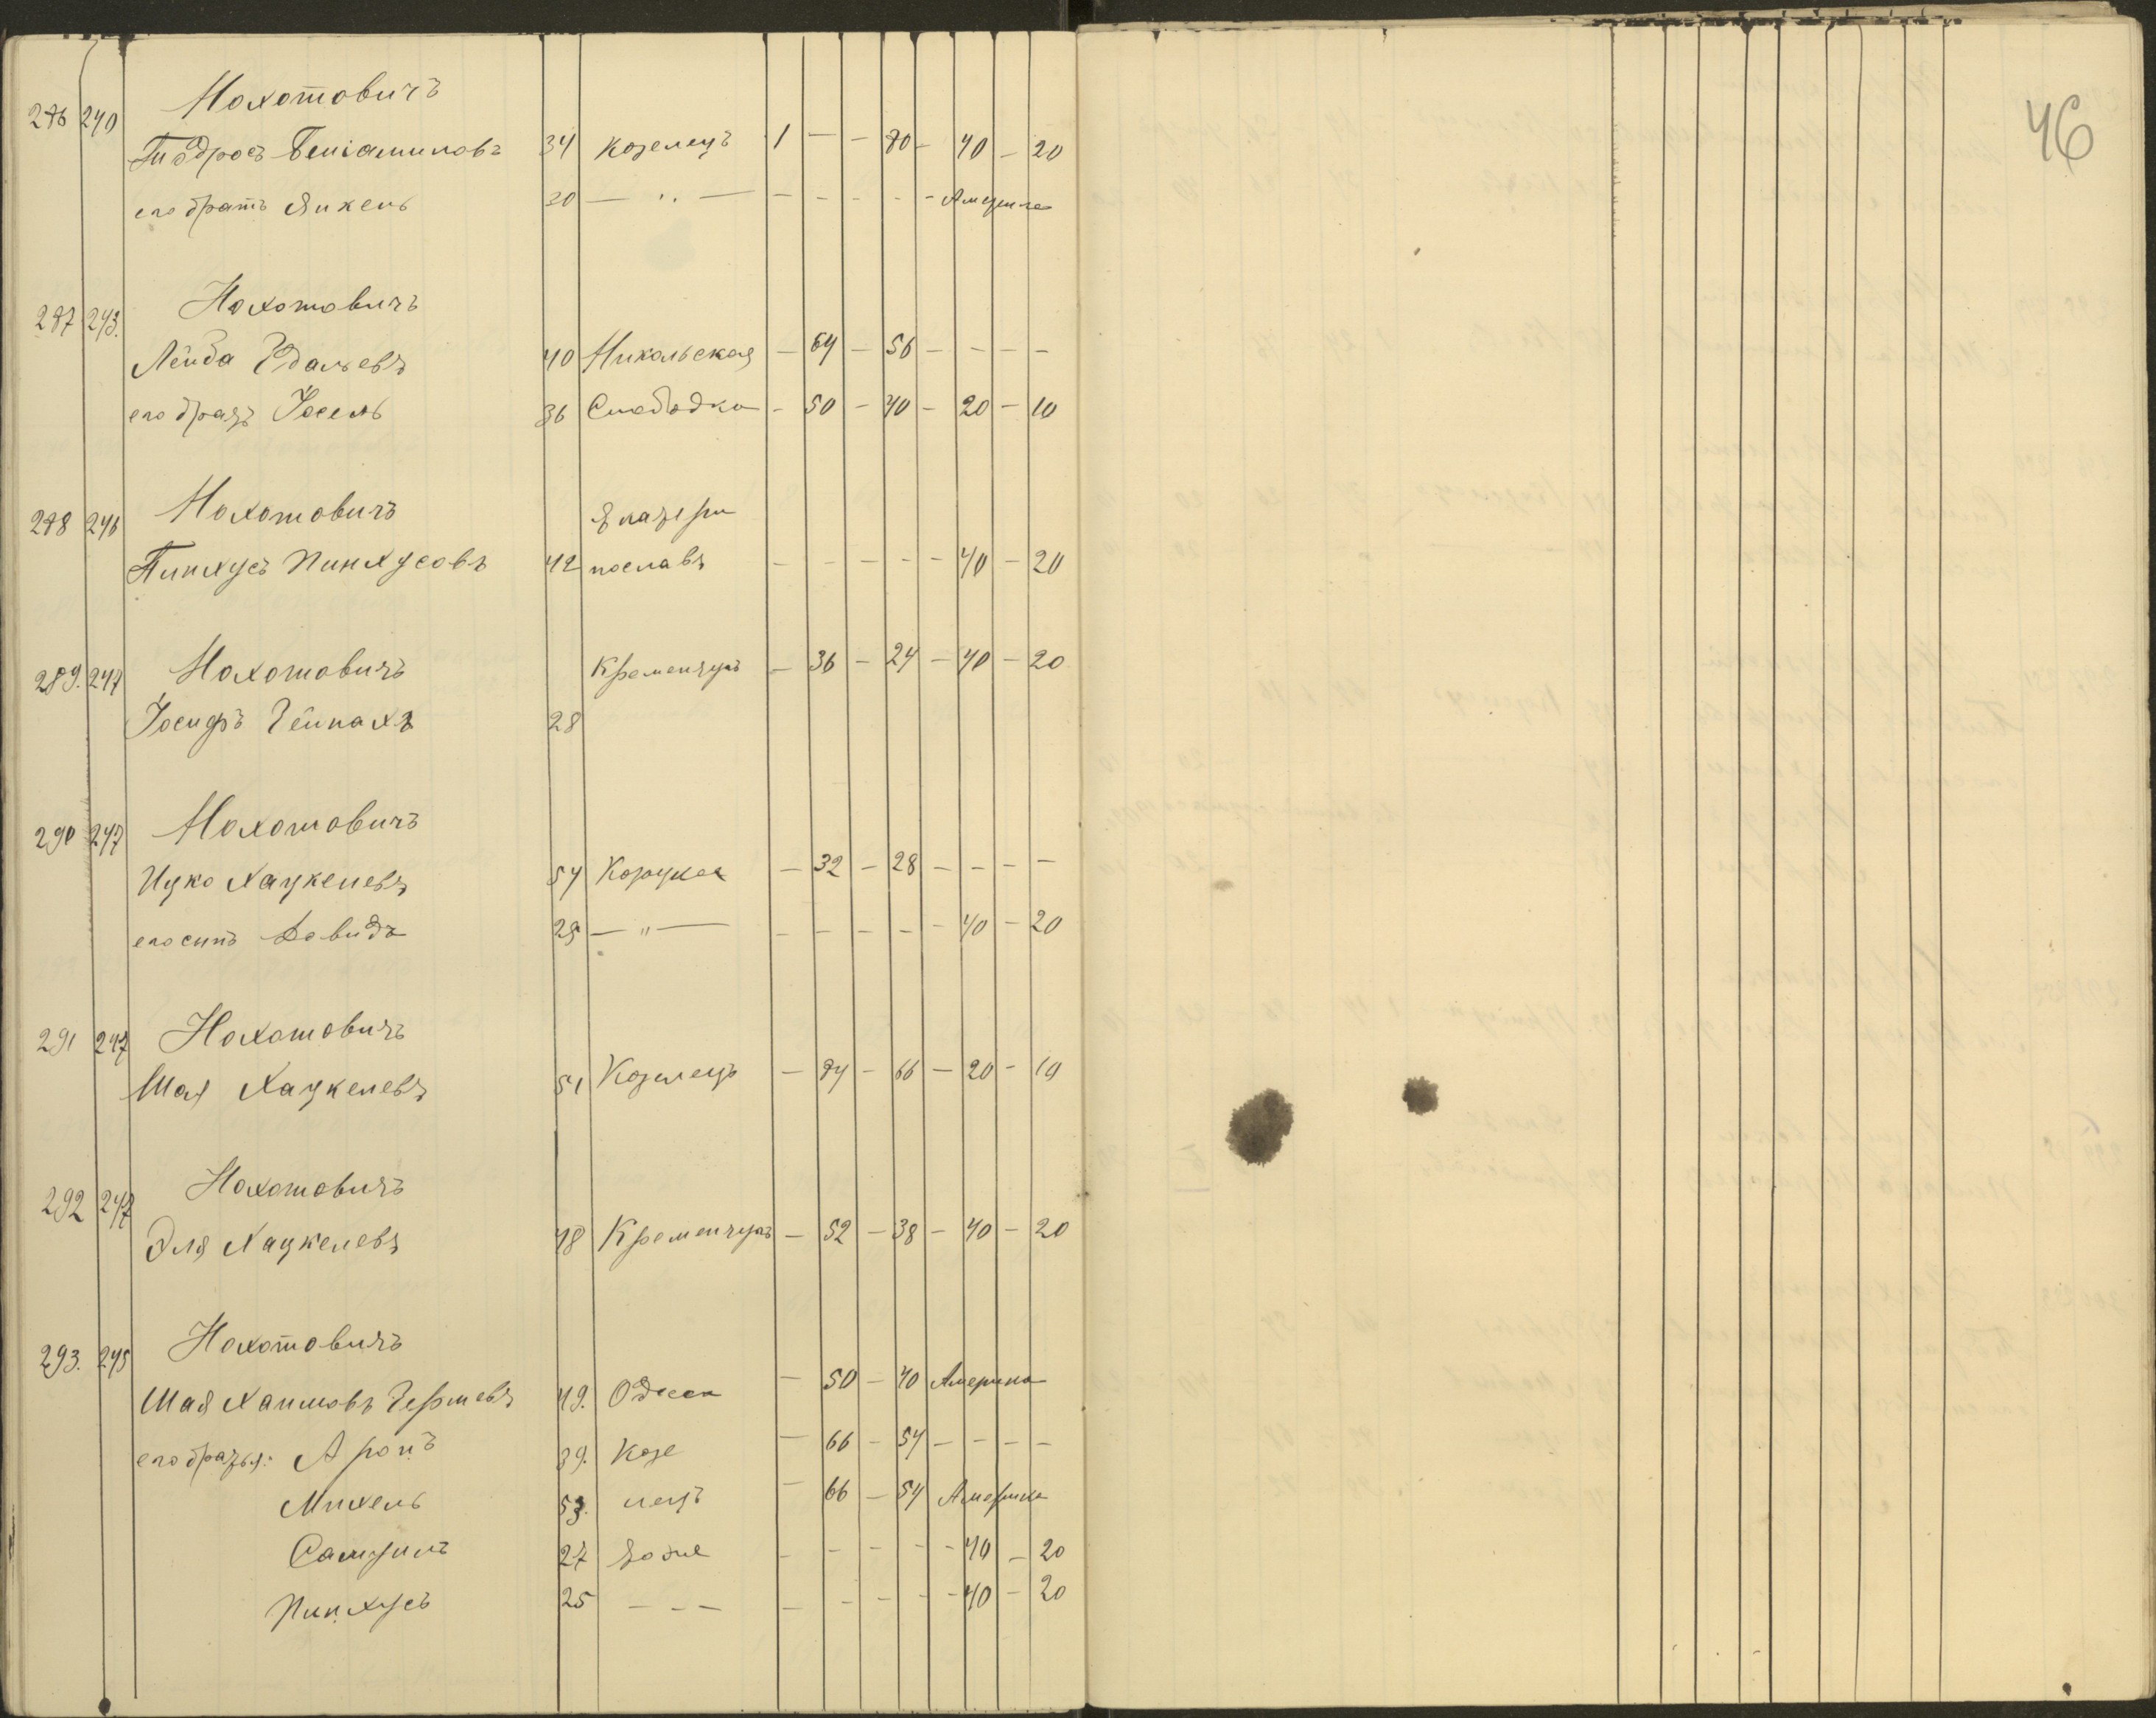 Нохотовичъ
286 240
Тодросъ Беніаминовъ 34 Козелецъ 1 — — 80 — 40 — 20
его братъ Янкель 20 — " — — — — — — Америка
Нохотовичъ
287 243.
Лейба Гдальевъ 40 Никольская — 64 — 56 — — — —
его братъ Іосель 36 Слободка — 50 — 40 — 20 — 10
288 246 Нохотовичъ Екатери
Пинхусъ Пинхусовъ 42 нославъ — — — — — 40 — 20
289. 247 Нохотовичъ Кременчугъ — 36 — 24 — 40 — 20
Іосифъ Гейнахъ 28
290 247 Нохотовичъ
Ицко Хацкелевъ 54 — 32 — 28 — — — —
его сынъ Давидъ 25 — " — — — — — — 40 — 20
291 247 Нохотовичъ
Шая Хацкелевъ 51 Козелецъ — 84 — 66 — 20 — 10
292 247 Нохотовичъ
Эля Хацкелевъ 48 Кременчугъ — 52 — 38 — 40 — 20
293. 245 Нохотовичъ
Шая Хаимовъ Гершевъ 49. Одесса — 50 — 40 Америка
его братья: Аронъ 39. Козе — 66 — 54 — — — —
Михель 53. лецъ — 66 — 54 Америка
Самуилъ 27 — — — — — 40 — 20
Пинхусъ 25 — — — — — — — — 40 — 20
46